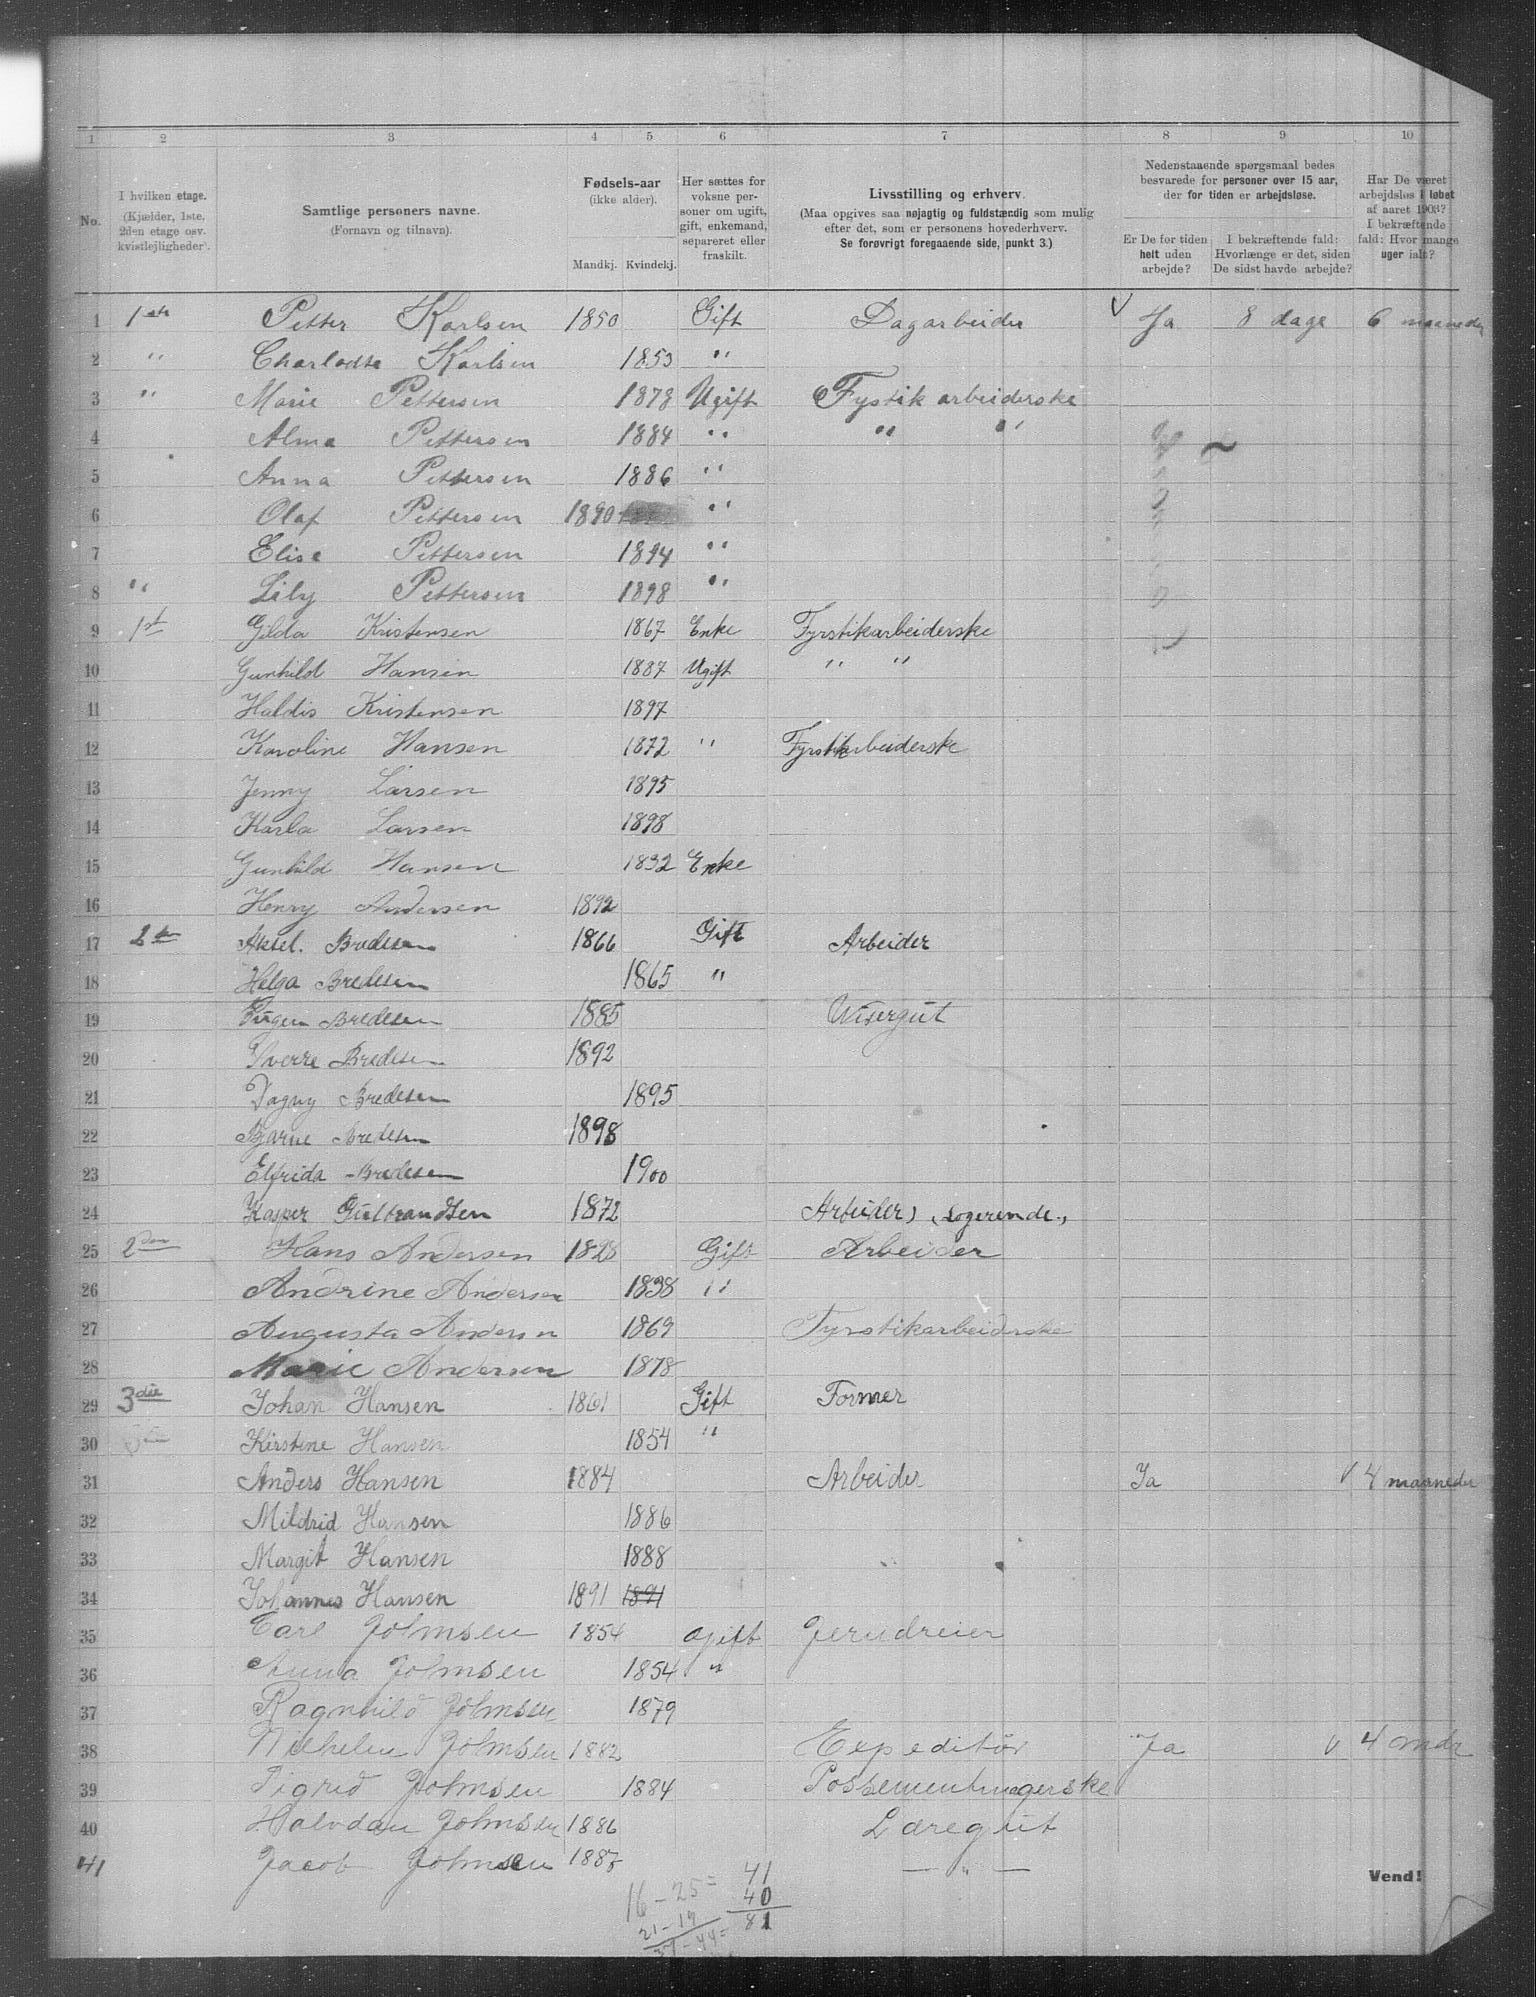 1 2 3 4 5 6 7 8 9 10
No.
I hvilken etage. (Kjælder, 1ste, 2den etage osv. kvistlejligheder).
Samtlige personers navne. (Fornavn og tilnavn).
Fødsels-aar (ikke alder). Mandkj. Kvindekj.
Her sættes for voksne personer om ugift, gift, enkemand, separeret eller fraskilt.
Livsstilling og erhverv. (Maa opgives saa nøjagtig og fuldstændig som mulig efter det, som er personens hovederhverv. Se forøvrigt foregaaende side, punkt 3.)
Nedenstaaende spørgsmaal bedes besvarede for personer over 15 aar, der for tiden er arbejdsløse.
Er De for tiden helt uden arbejde?
I bekræftende fald: Hvorlænge er det, siden De sidst havde arbejde?
Har De været arbejdsløs i løbet af aaret 1903? I bekræftende fald: Hvor mange uger ialt?
1 1ste Petter Karlsen 1850 Gift Dagarbeider V Ja 8 dage 6 maaneder
2 " Charlodte Karlsen 1853 "
3 " Marie Pettersen 1878 Ugift Fystik arbeiderske
4 Alma Pettersen 1884 " " "
5 Anna Pettersen 1886 "
6 Olaf Pettersen 1890 "
7 Elise Pettersen 1894 "
8 " Lily Pettersen 1898 "
9 1st Gilda Kristensen 1867 Enke Fyrstikarbeiderske
10 Gunhild Hansen 1887 Ugift " "
11 Haldis Kristensen 1897
12 Karoline Hansen 1872 " Fyrstikarbeiderske
13 Jenny Larsen 1895
14 Karla Larsen 1898
15 Gunhild Hansen 1832 Enke
16 Henry Andersen 1892
17 2den Aksel. Bredesen 1866 Gift Arbeider
18 Helga Bredesen 1865 "
19 Eugen Bredesen 1885 Visergut
20 Sverre Bredesen 1892
21 Dagny Bredesen 1895
22 Bjarne Bredesen 1898
23 Elfrida Bredesen 1900
24 Kasper Gulbrandsen 1872 Arbeider, (Logerende.)
25 2den Hans Andersen 1828 Gift Arbeider
26 Andrine Andersen 1838 "
27 Augusta Andersen 1869 Fyrstikarbeiderske
28 Marie Andersen 1878
29 3die Johan Hansen 1861 Gift Former
30 Kirstine Hansen 1854 "
31 Anders Hansen 1884 Arbeider Ja V 4 maaneder
32 Mildrid Hansen 1886
33 Margit Hansen 1888
34 Johannes Hansen 1891 1891
35 Carl Johnsen 1854 Gift Jerndreier
36 Anna Johnsen 1854 "
37 Ragnhild Johnsen 1879
38 Vilhelm Johnsen 1882 Expeditör Ja V 4 mdr
39 Sigrid Johnsen 1884 Possementmagerske
40 Halvdan Johnsen 1886 Læregut
41 Jacob Johnsen 1887 — " —
Vend!
16 - 25 = 41
21 - 19 40
37 - 44 = 81